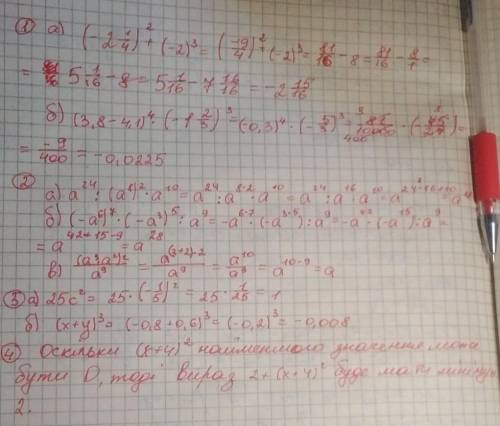 ① а) (-2 1/4)² + (-2)³ = (-9/4)² + (-2)³ = 81/16 - 8 = 81/16 - 8/1 =
= 5 1/16 - 8 = 5 1/16 - 7 16/16 = -2 15/16
б) (3,8 - 4,1)⁴ · (-1 2/3)³ = (0,3)⁴ · (-5/3)³ =
= -9/400 = -0,0225
② а) a²⁴ : (a⁸)² · a¹⁰ = a²⁴ : a⁸·² · a¹⁰ = a²⁴ : a¹⁶ · a¹⁰ =
б) (-a⁶)⁷ · (-a³)⁵ : a⁹ = -a⁶·⁷ · (-a³·⁵) : a⁹ = -a⁴² · (-a¹⁵) : a⁹ =
= a⁴²⁺¹⁵⁻⁹ = a²⁸
в) (a³a²)²/a⁹ = a⁽³⁺²⁾·²/a⁹ = a¹⁰/a⁹ = a¹⁰⁻⁹ = a
③ а) 25c² = 25 · (-1/5)² = 25 · 1/25 = 1
б) (x+y)³ = (-0,8+0,6)³ = (-0,2)³ = -0,008
④ Оскільки (x+4)² найменшого значення може
бути 0, тоді вираз 2+(x+4)² буде мати мінімум
2.